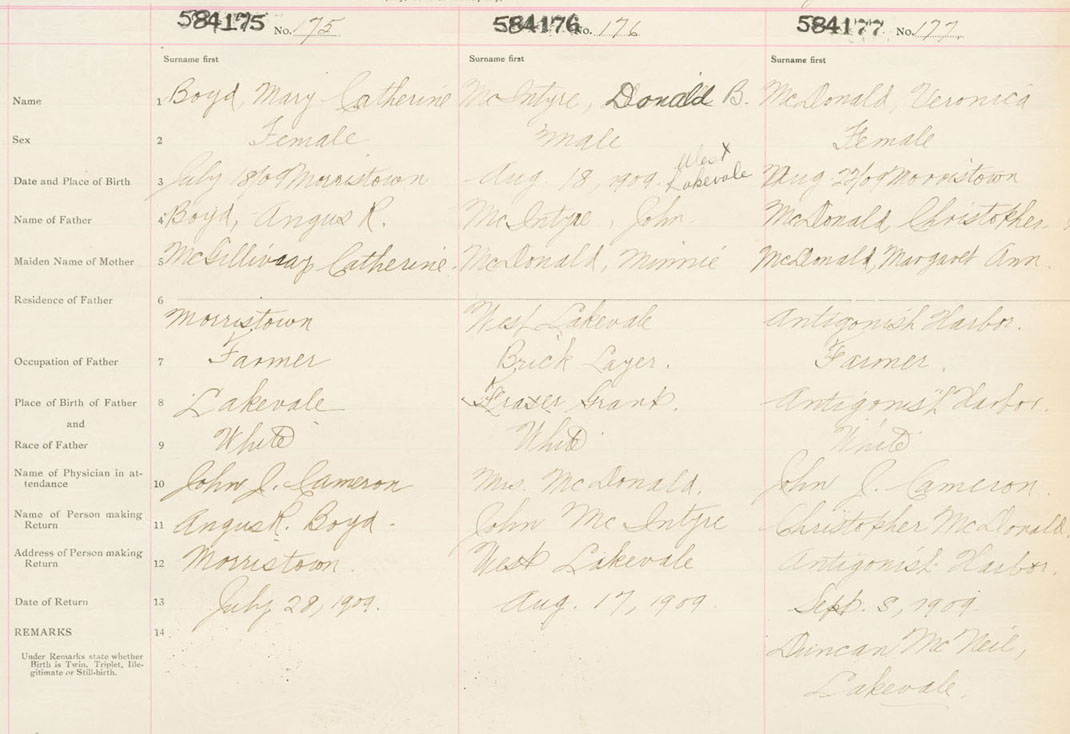 584175 No. 175 584176 No. 176 584177 No. 177
Surname first Surname first Surname first
Name 1 Boyd, Mary Catherine McIntyre, Donald B. McDonald, Veronica
Sex 2 Female male Female
West
Date and Place of Birth 3 July 8/09 Morristown Aug. 18, 1909. Lakevale Aug 22/09 Morristown
Name of Father 4 Boyd, Angus R. McIntyre, John McDonald, Christopher
Maiden Name of Mother 5 McGillivray Catherine. McDonald, Minnie McDonald, Margaret Ann.
Residence of Father 6
Morristown West Lakevale Antigonish Harbor.
Occupation of Father 7 Farmer Brick Layer. Farmer.
Place of Birth of Father 8 Lakevale Fraser Grant. Antigonish Harbor.
and
Race of Father 9 White White White
Name of Physician in at-
tendance 10 John J. Cameron Mrs. McDonald. John J. Cameron.
Name of Person making
Return 11 Angus R. Boyd - John McIntyre Christopher McDonald.
Address of Person making
Return 12 Morristown. West Lakevale Antigonish Harbor.
Date of Return 13 July 28, 1909. Aug. 17, 1909 Sept. 8, 1909
REMARKS 14 Duncan McNeil,
Under Remarks state whether
Birth is Twin, Triplet, Ille-
gitimate or Still-birth.
Lakevale.